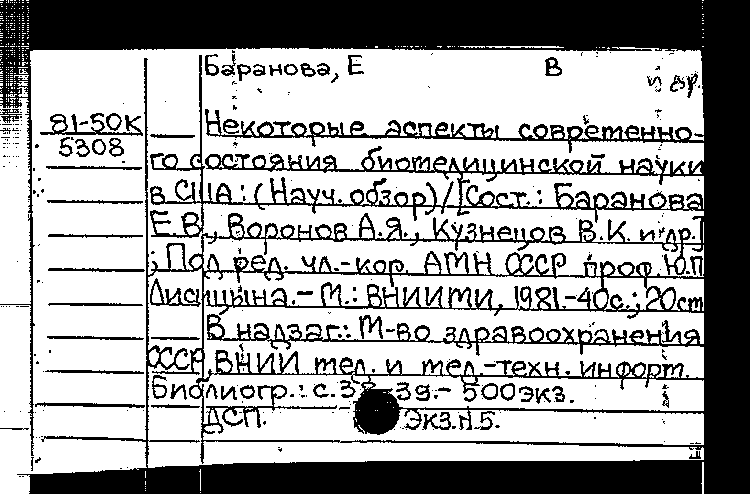 Баранова, Е В и др.
81-50К
5308
Некоторые аспекты современно-
го состояния биомедицинской науки
в США: (Науч. обзор)/[Сост.: Баранова
Е.В., Воронов А.Я., Кузнецов В.К. и др.]
; Под ред. чл.-кор. АМН СССР проф. Ю.П
Лисицына.- М.: ВНИИМИ, 1981.-40с.; 20см
В надзаг.: М-во здравоохранения
СССР, ВНИИ мед. и мед.-техн. информ.
Библиогр.: с.38-39.- 500экз.
ДСП. Экз.N5.